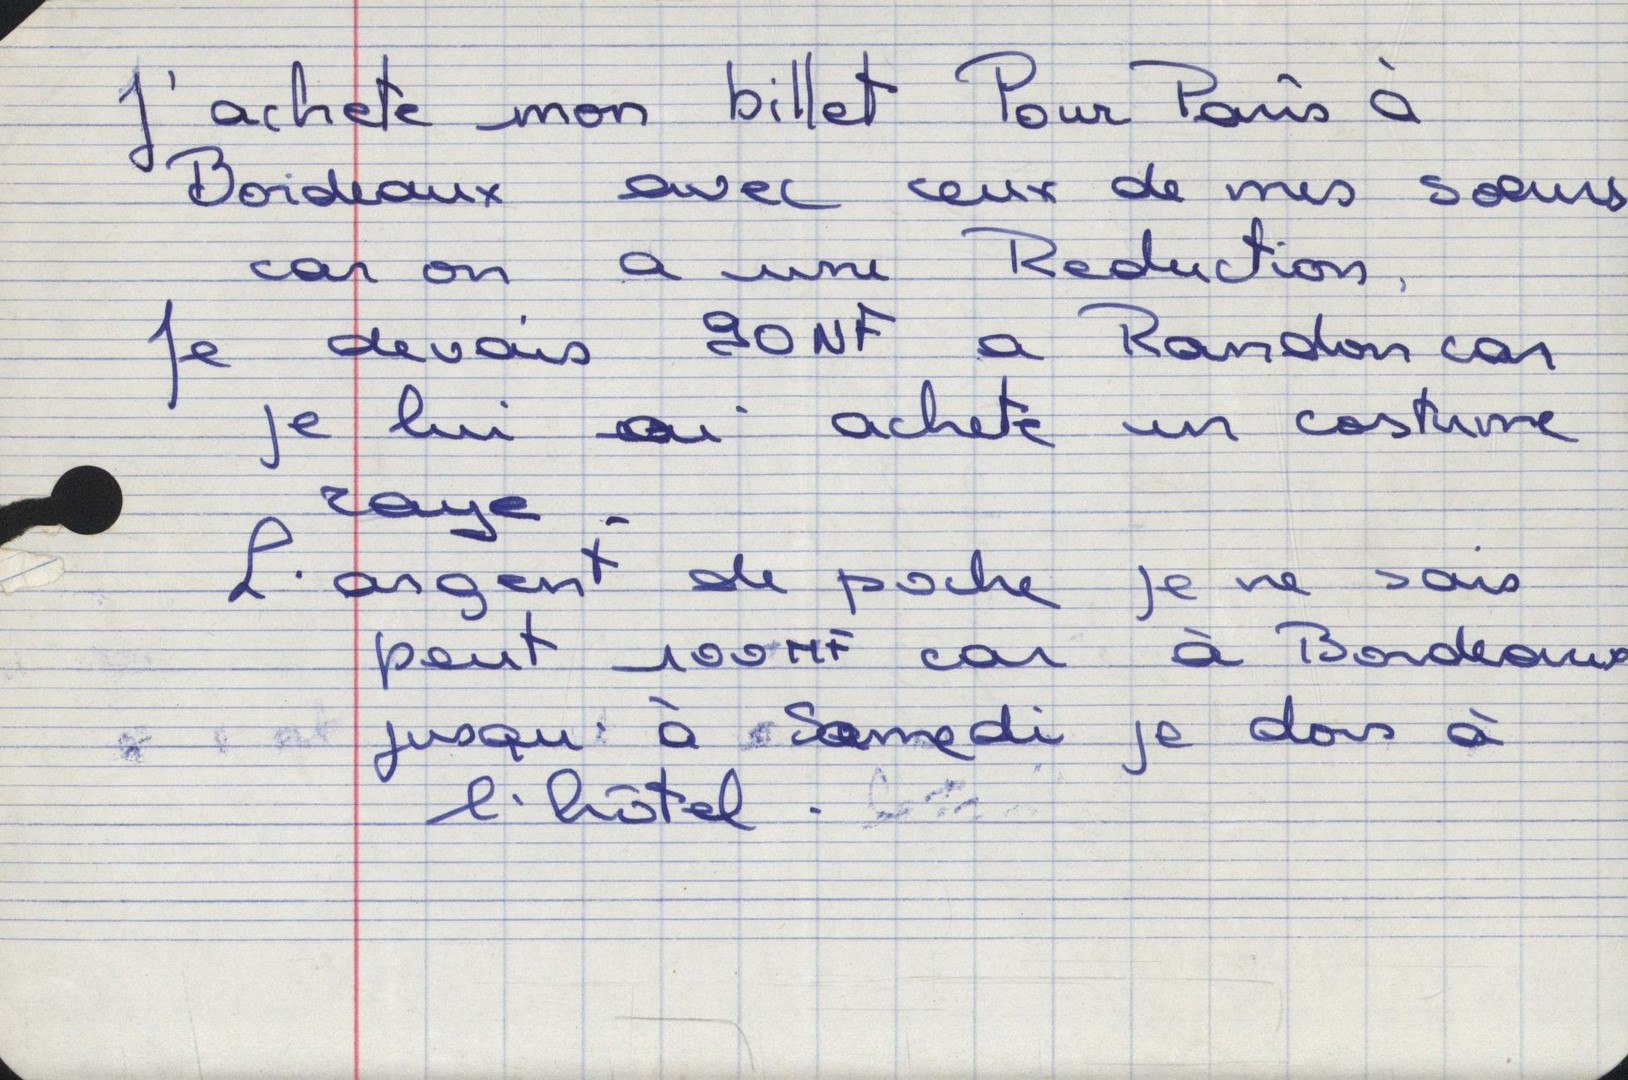 J'achete mon billet Pour Paris à
Bordeaux avec ceux de mes soeurs
car on a une Reduction.
Je devais 90 NF a Randon car
je lui ai acheté un costume
raye.
L'argent de poche je ne sais
peut 100 NF car à Bordeaux
jusqu'à Samedi je dors à
l'hôtel.